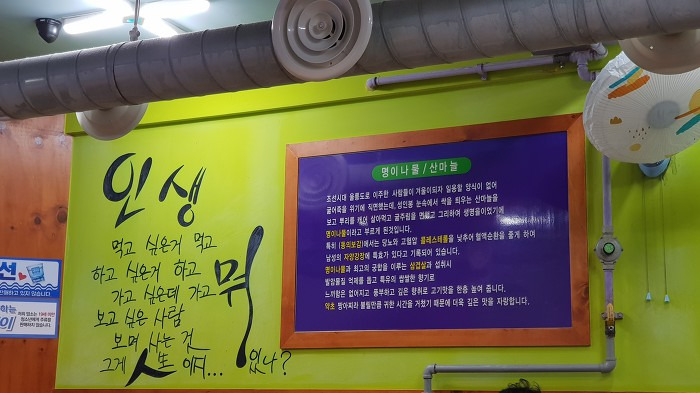 인생
먹고 싶은거 먹고
하고 싶은거 하고
가고 싶은데 가고
보고 싶은 사람
보며 사는 것
그게 人生 이지... 뭐 있나?
명이나물/산마늘
조선시대 울릉도로 이주한 사람들이 겨울이되자 일용할 양식이 없어
굶어죽을 위기에 직면했는데, 성인봉 눈속에서 싹을 틔우는 산마늘을
보고 뿌리를 캐어 삶아먹고 굶주림을 면했고 그리하여 생명을이었기에
명이나물이라고 부르게 된것입니다.
특히 (동의보감)에서는 당뇨와 고혈압 콜레스테롤을 낮추어 혈액순환을 좋게 하며
남성의 자양강장에 특효가 있다고 기록되어 있습니다.
명이나물과 최고의 궁합을 이루는 삼겹살과 섭취시
발암물질 억제를 돕고 특유의 쌉쌀한 향기로
느끼함은 없어지고 풍부하고 깊은 향취로 고기맛을 한층 높여 줍니다.
약초 짱아찌라 불릴만큼 귀한 시간을 거쳤기 때문에 더욱 깊은 맛을 자랑합니다.
선
하고 있지 않습니다.
하는
저희 업소는 19세 미만
청소년에게 주류를
판매하지 않습니다.